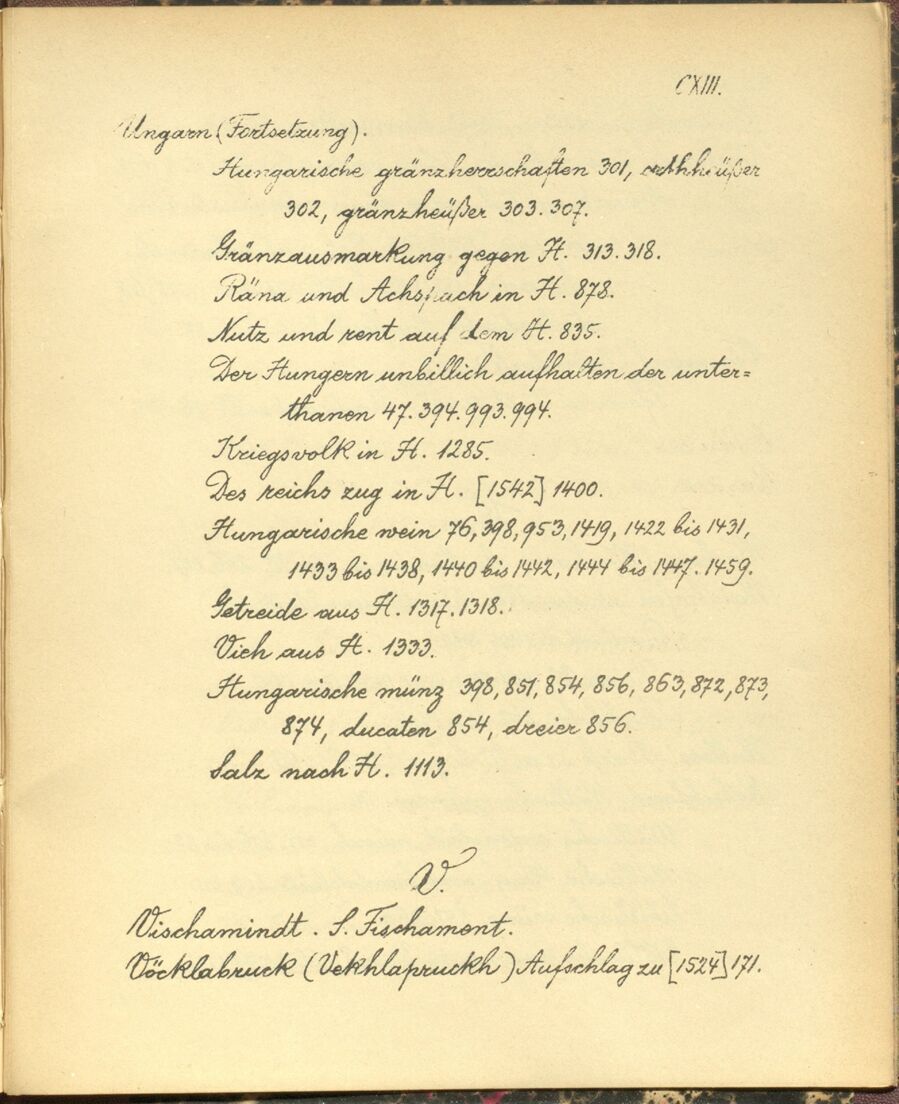 CXIII.
Ungarn (Fortsetzung).
Hungarische gränzherrschaften 301, orthheüßer
302, gränzheüßer 303. 307.
Gränzausmarkung gegen H. 313. 318.
Räna und Achspach in H. 878.
Nutz und rent auf dem H. 835.
Der Hungern unbillich aufhalten der unter=
thanen 47. 394. 993. 994.
Kriegsvolk in H. 1285.
Des reichs zug in H. [1542] 1400.
Hungarische wein 76, 398, 953, 1419, 1422 bis 1431,
1433 bis 1438, 1440 bis 1442, 1444 bis 1447. 1459.
Getreide aus H. 1317. 1318.
Vich aus H. 1333.
Hungarische münz 398, 851, 854, 856, 863, 872, 873,
874, ducaten 854, dreier 856.
Salz nach H. 1113.
V.
Vischamindt. S. Fischament.
Vöcklabruck (Vekhlapruckh) Aufschlag zu [1524] 171.